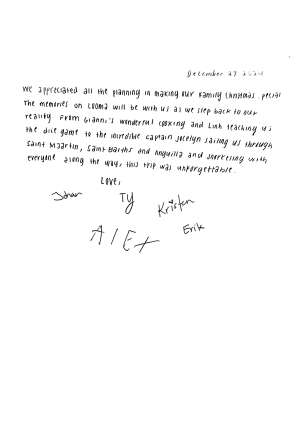 December 27 2021
We appreciated all the planning in making our family Christmas special
The memories on LOOMA will be with us as we step back to our
reality. From Gianni's wonderful cooking and Linh teaching us
the dice game to the incredible captain Jocelyn sailing us through
Saint Maartin, Saint Barths and Anguilla and snorkeling with
everyone along the way, this trip was unforgettable.
Love,
Johan
Ty
Kristen
Alex
Erik